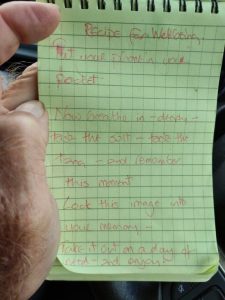 RECIPE for Wellbeing.
Put your              in your
pocket.
Now breathe in - deeply -
taste the salt - taste the
tang - and remember
this moment
Lock this image into
your memory -
Take it out on a day of
need - and enjoy